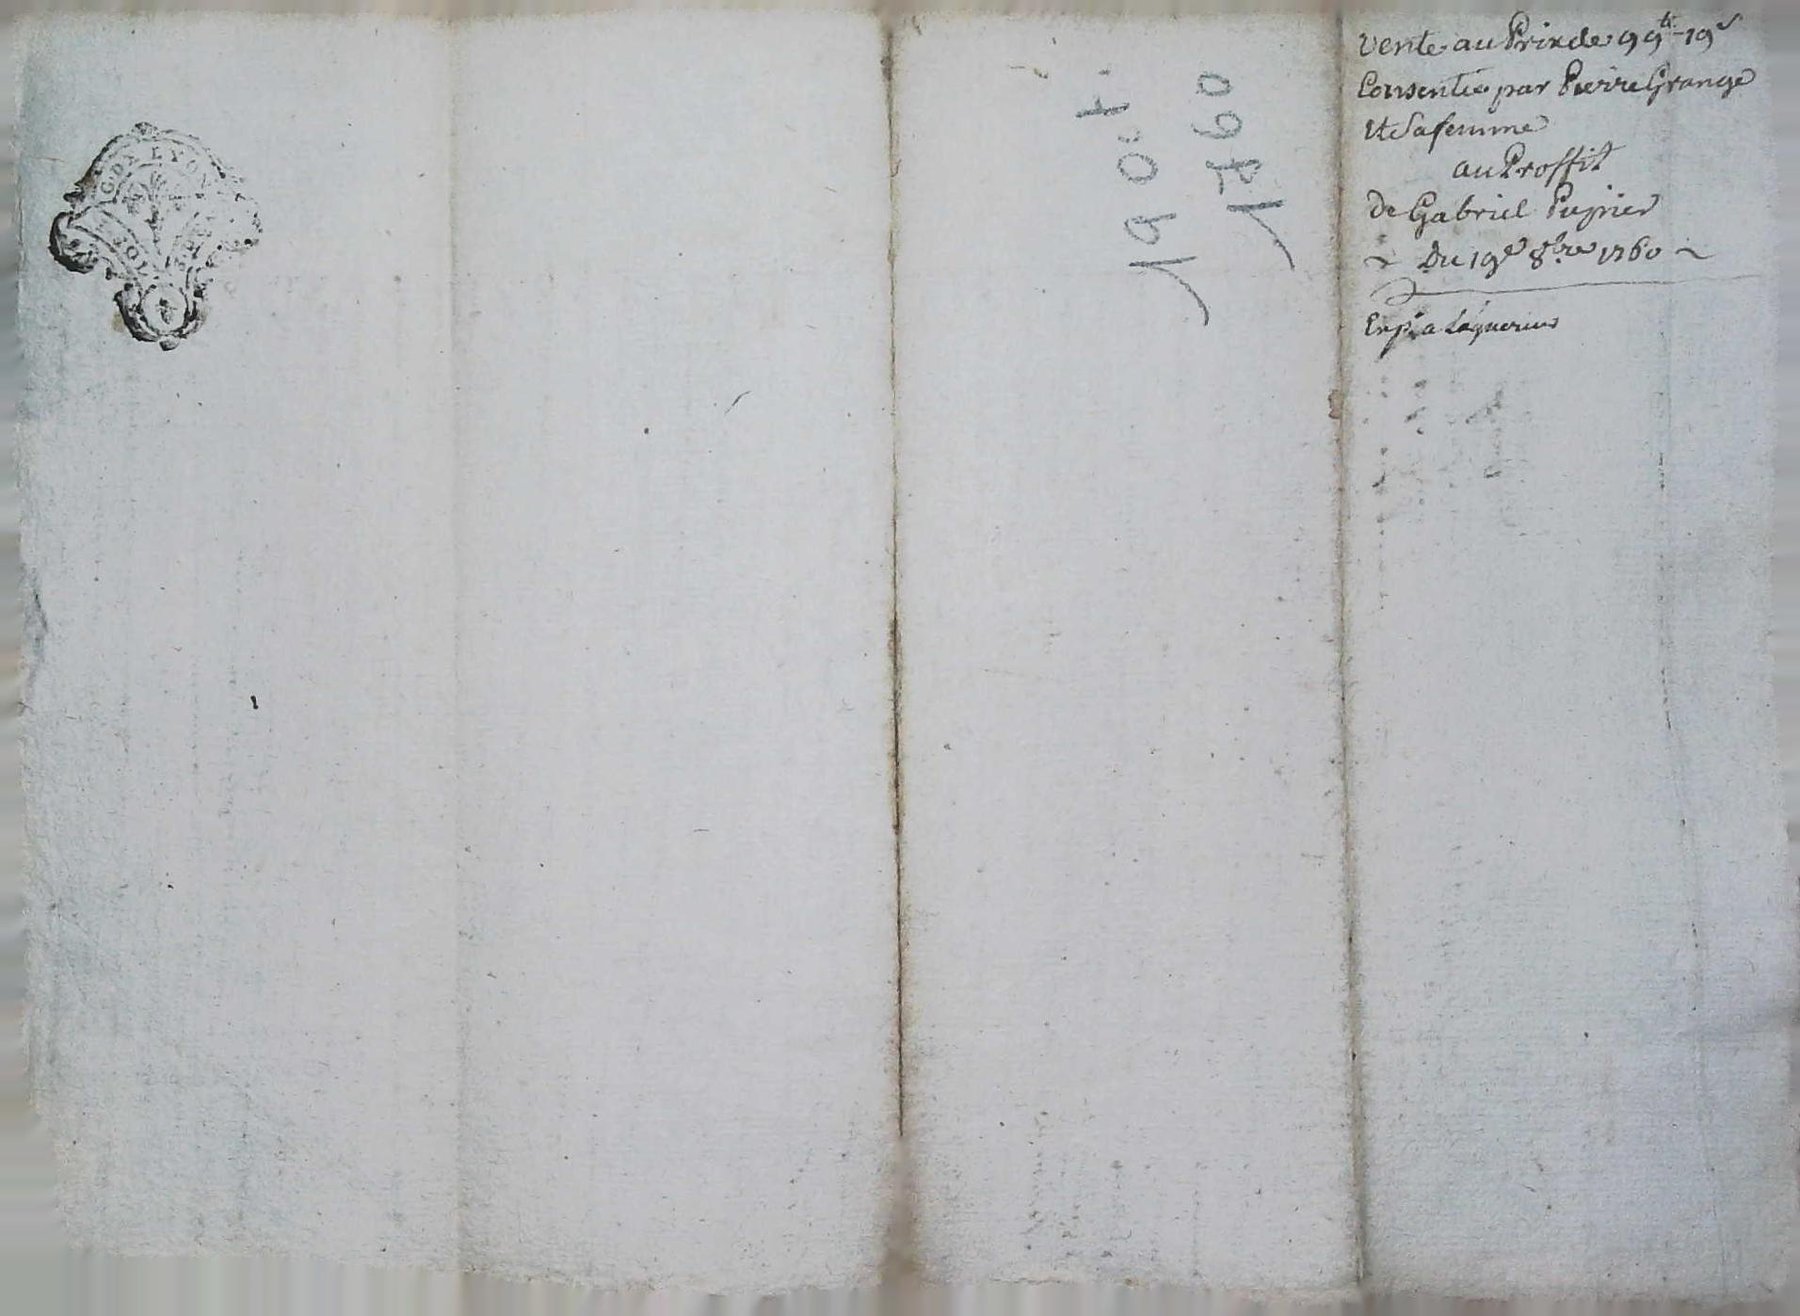 GON LYON
SOL
19 oct.
1760
Vente au Prix de 99tt 19s
Consentie par Pierre Grange
et Sa femme
au Proffit
de Gabriel Pugnier
~ Du 19e 8bre 1760 ~
Exp. a